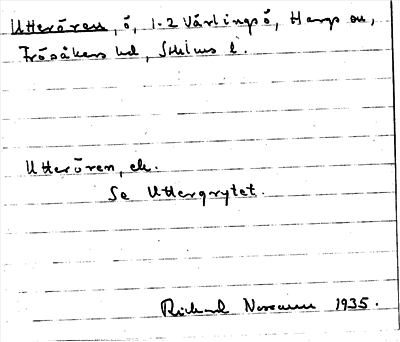 Utterören, ö, 1-2 Värlingsö, Hargs sn,
Frösåkers hd, Sthlms l.
Utterören, ek.
Se Uttergrytet.
Richard Norman 1935.